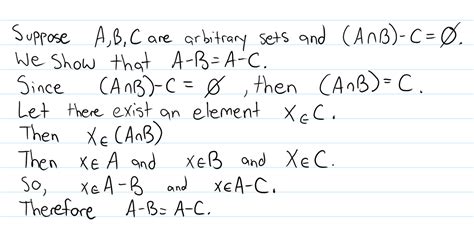 Suppose A,B,C are arbitrary sets and (A∩B)-C=∅.
We Show that A-B=A-C.
Since (A∩B)-C=∅, then (A∩B)=C.
Let there exist an element X∈C.
Then X∈(A∩B)
Then X∈A and X∈B and X∈C.
So, X∈A-B and X∈A-C.
Therefore A-B=A-C.